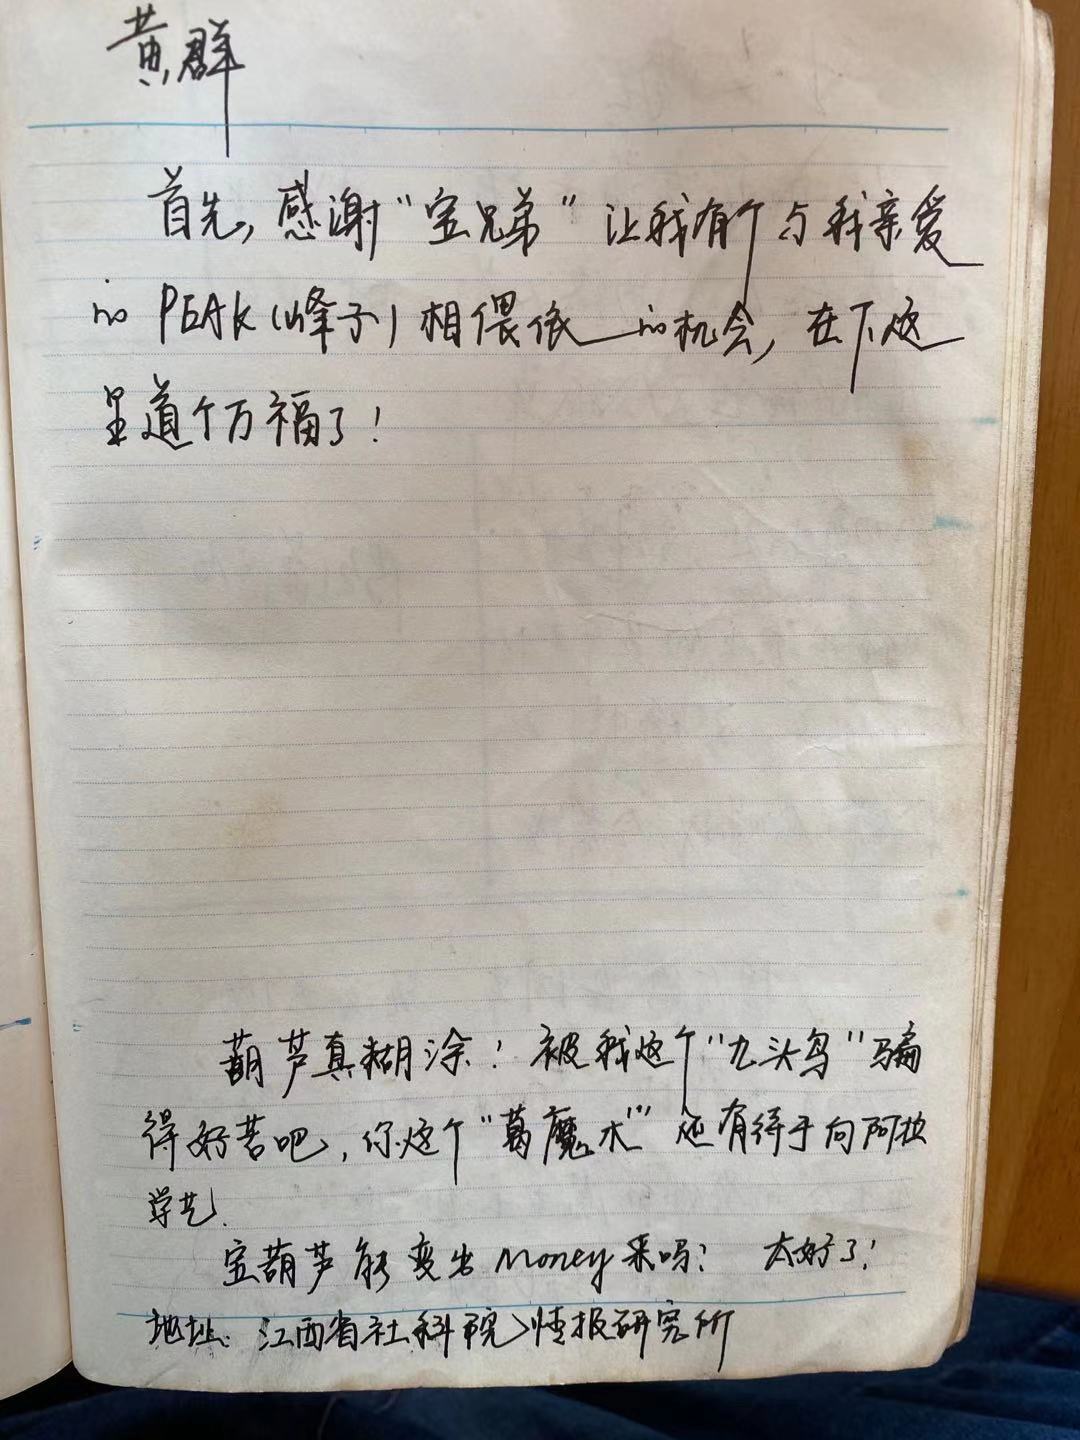 黄群
首先，感谢“宝兄弟”让我有个与我亲爱
的PEAK（峰子）相偎依的机会，在下这
里道个万福了！
葫芦真糊涂！被我这个“九头鸟”骗
得好苦吧，你这个“葛魔术”还有待于向阿拉
学艺．
宝葫芦能变出money来吗？太好了！
地址：江西省社科院情报研究所